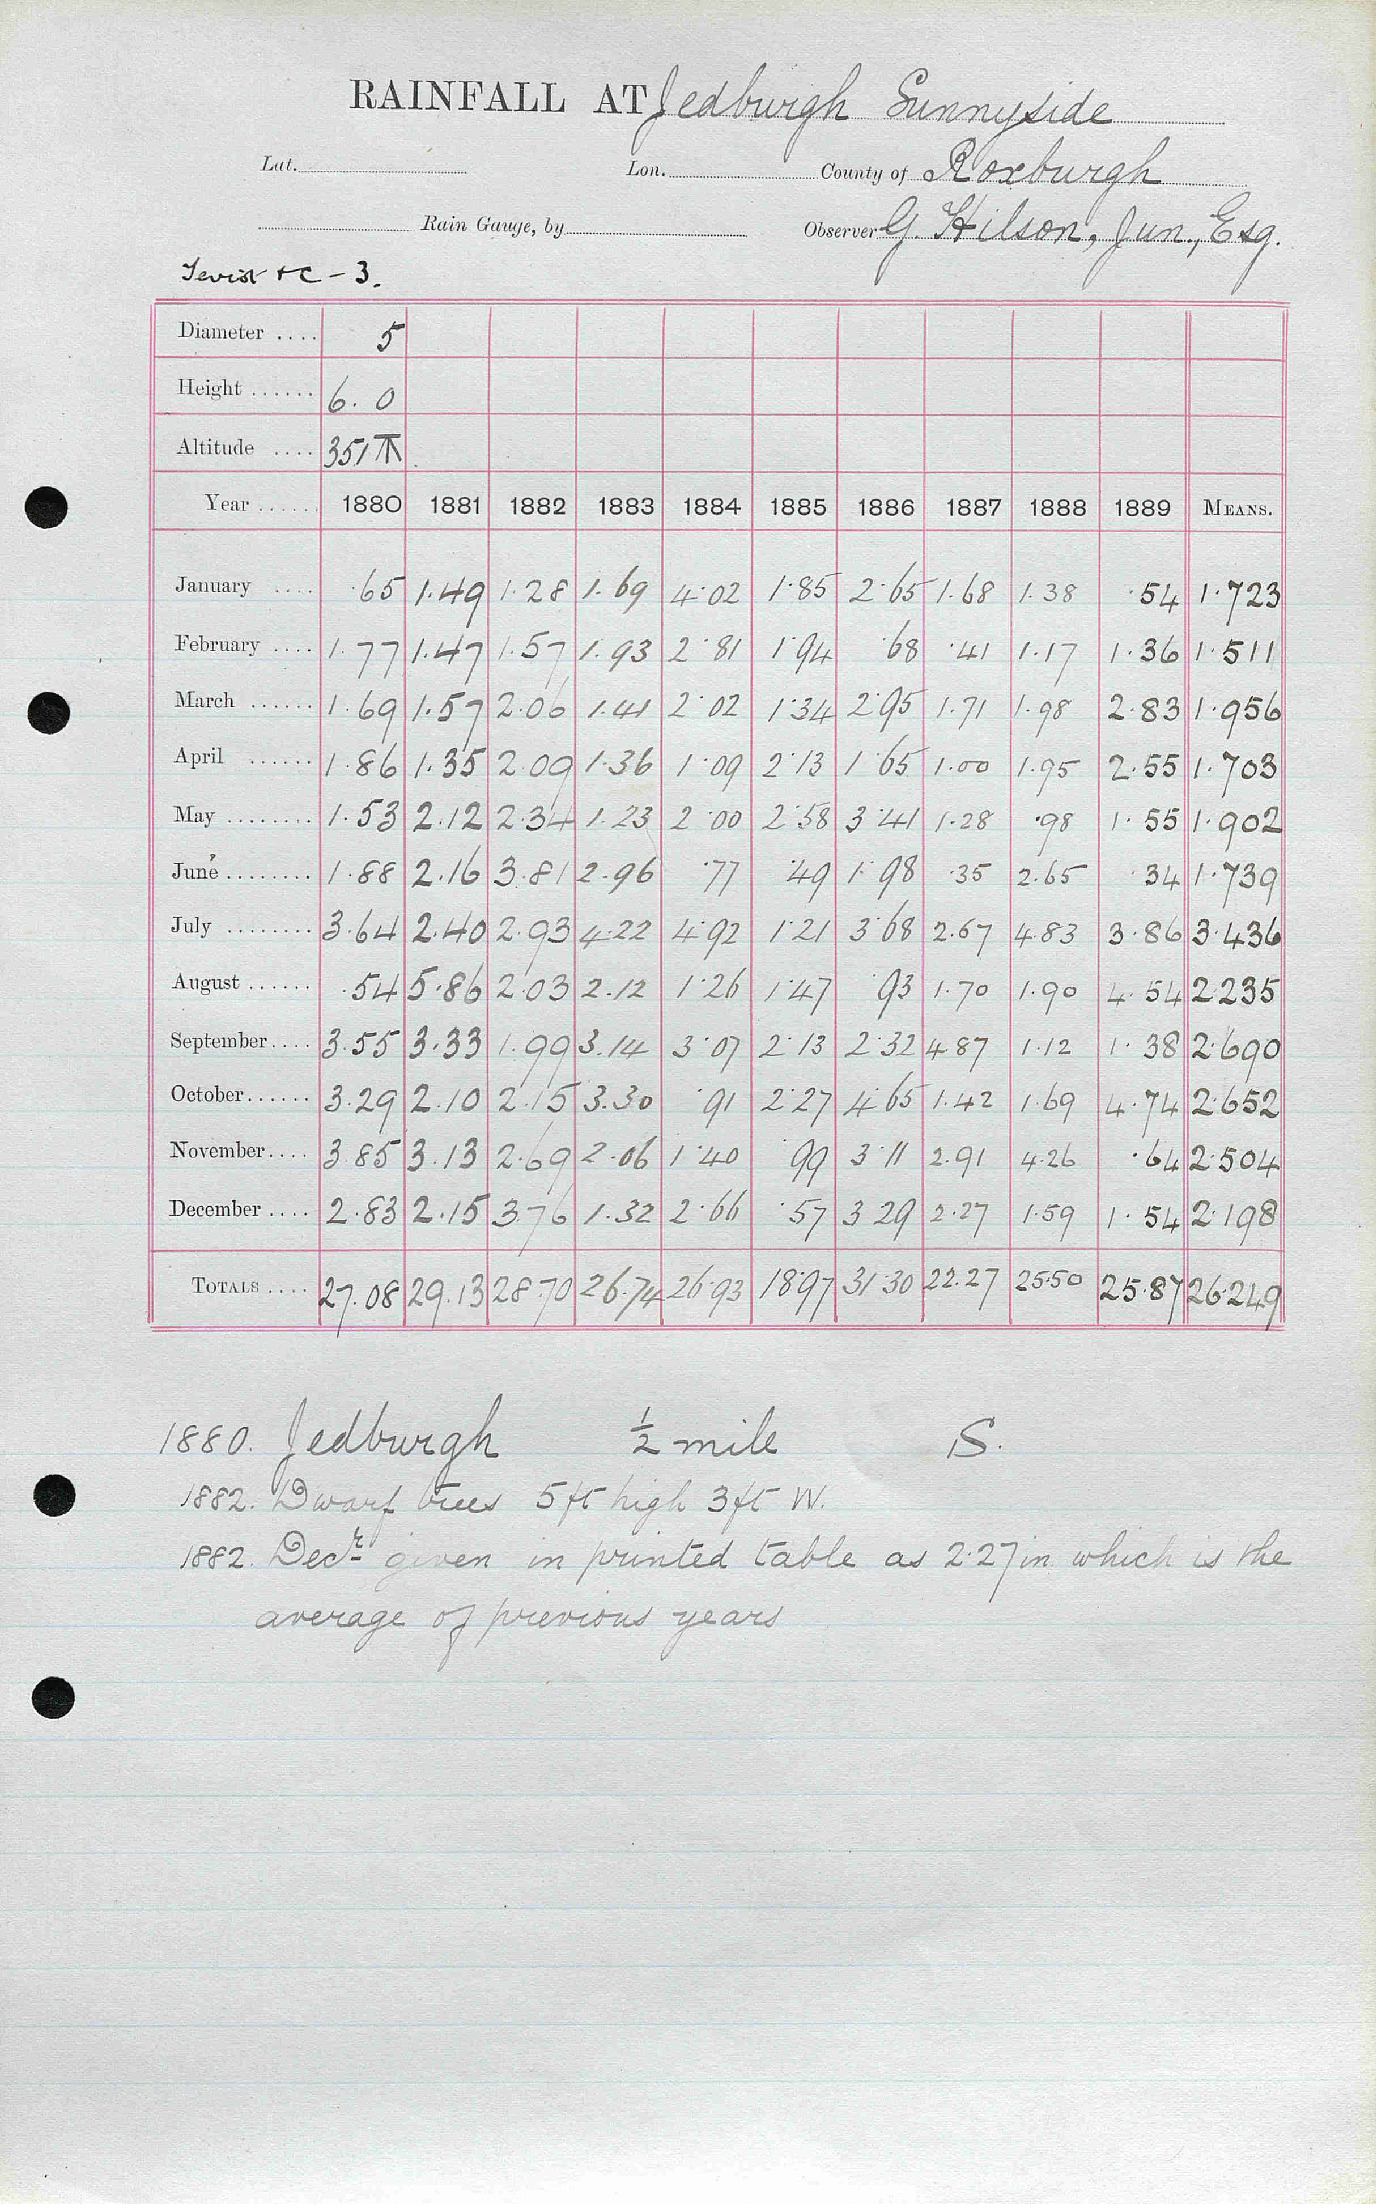 RAINFALL AT Jedburgh Sunnyside
Lat. Lon. County of Roxburgh
Rain Gauge, by Observer G. Hilson, Jun., Esq.
Teviot &c - 3.
Diameter .... 5
Height ...... 6. 0
Altitude .... 351
Year ...... 1880 1881 1882 1883 1884 1885 1886 1887 1888 1889 MEANS.
January .... ·65 1·49 1·28 1·69 4·02 1·85 2·65 1·68 1·38 ·54 1·723
February .... 1·77 1·47 1·57 1·93 2·81 1·94 ·68 ·41 1·17 1·36 1·511
March ...... 1·69 1·57 2·06 1·41 2·02 1·34 2·95 1·71 1·98 2·83 1·956
April ...... 1·86 1·35 2·09 1·36 1·09 2·13 1·65 1·00 1·95 2·55 1·703
May ........ 1·53 2·12 2·34 1·23 2·00 2·58 3·41 1·28 ·98 1·55 1·902
June ........ 1·88 2·16 3·81 2·96 ·77 ·49 1·98 ·35 2·65 ·34 1·739
July ........ 3·64 2·40 2·93 4·22 4·92 1·21 3·68 2·67 4·83 3·86 3·436
August ...... ·54 5·86 2·03 2·12 1·26 1·47 ·93 1·70 1·90 4·54 2·235
September .... 3·55 3·33 1·99 3·14 3·07 2·13 2·32 4·87 1·12 1·38 2·690
October ...... 3·29 2·10 2·15 3·30 ·91 2·27 4·65 1·42 1·69 4·74 2·652
November .... 3·85 3·13 2·69 2·06 1·40 ·99 3·11 2·91 4·26 ·64 2·504
December .... 2·83 2·15 3·76 1·32 2·66 ·57 3·29 2·27 1·59 1·54 2·198
TOTALS .... 27·08 29·13 28·70 26·74 26·93 18·97 31·30 22·27 25·50 25·87 26·249
1880. Jedburgh ½ mile S.
1882. Dwarf trees 5 ft high 3 ft W.
1882. Decr given in printed table as 2·27 in which is the
average of previous years